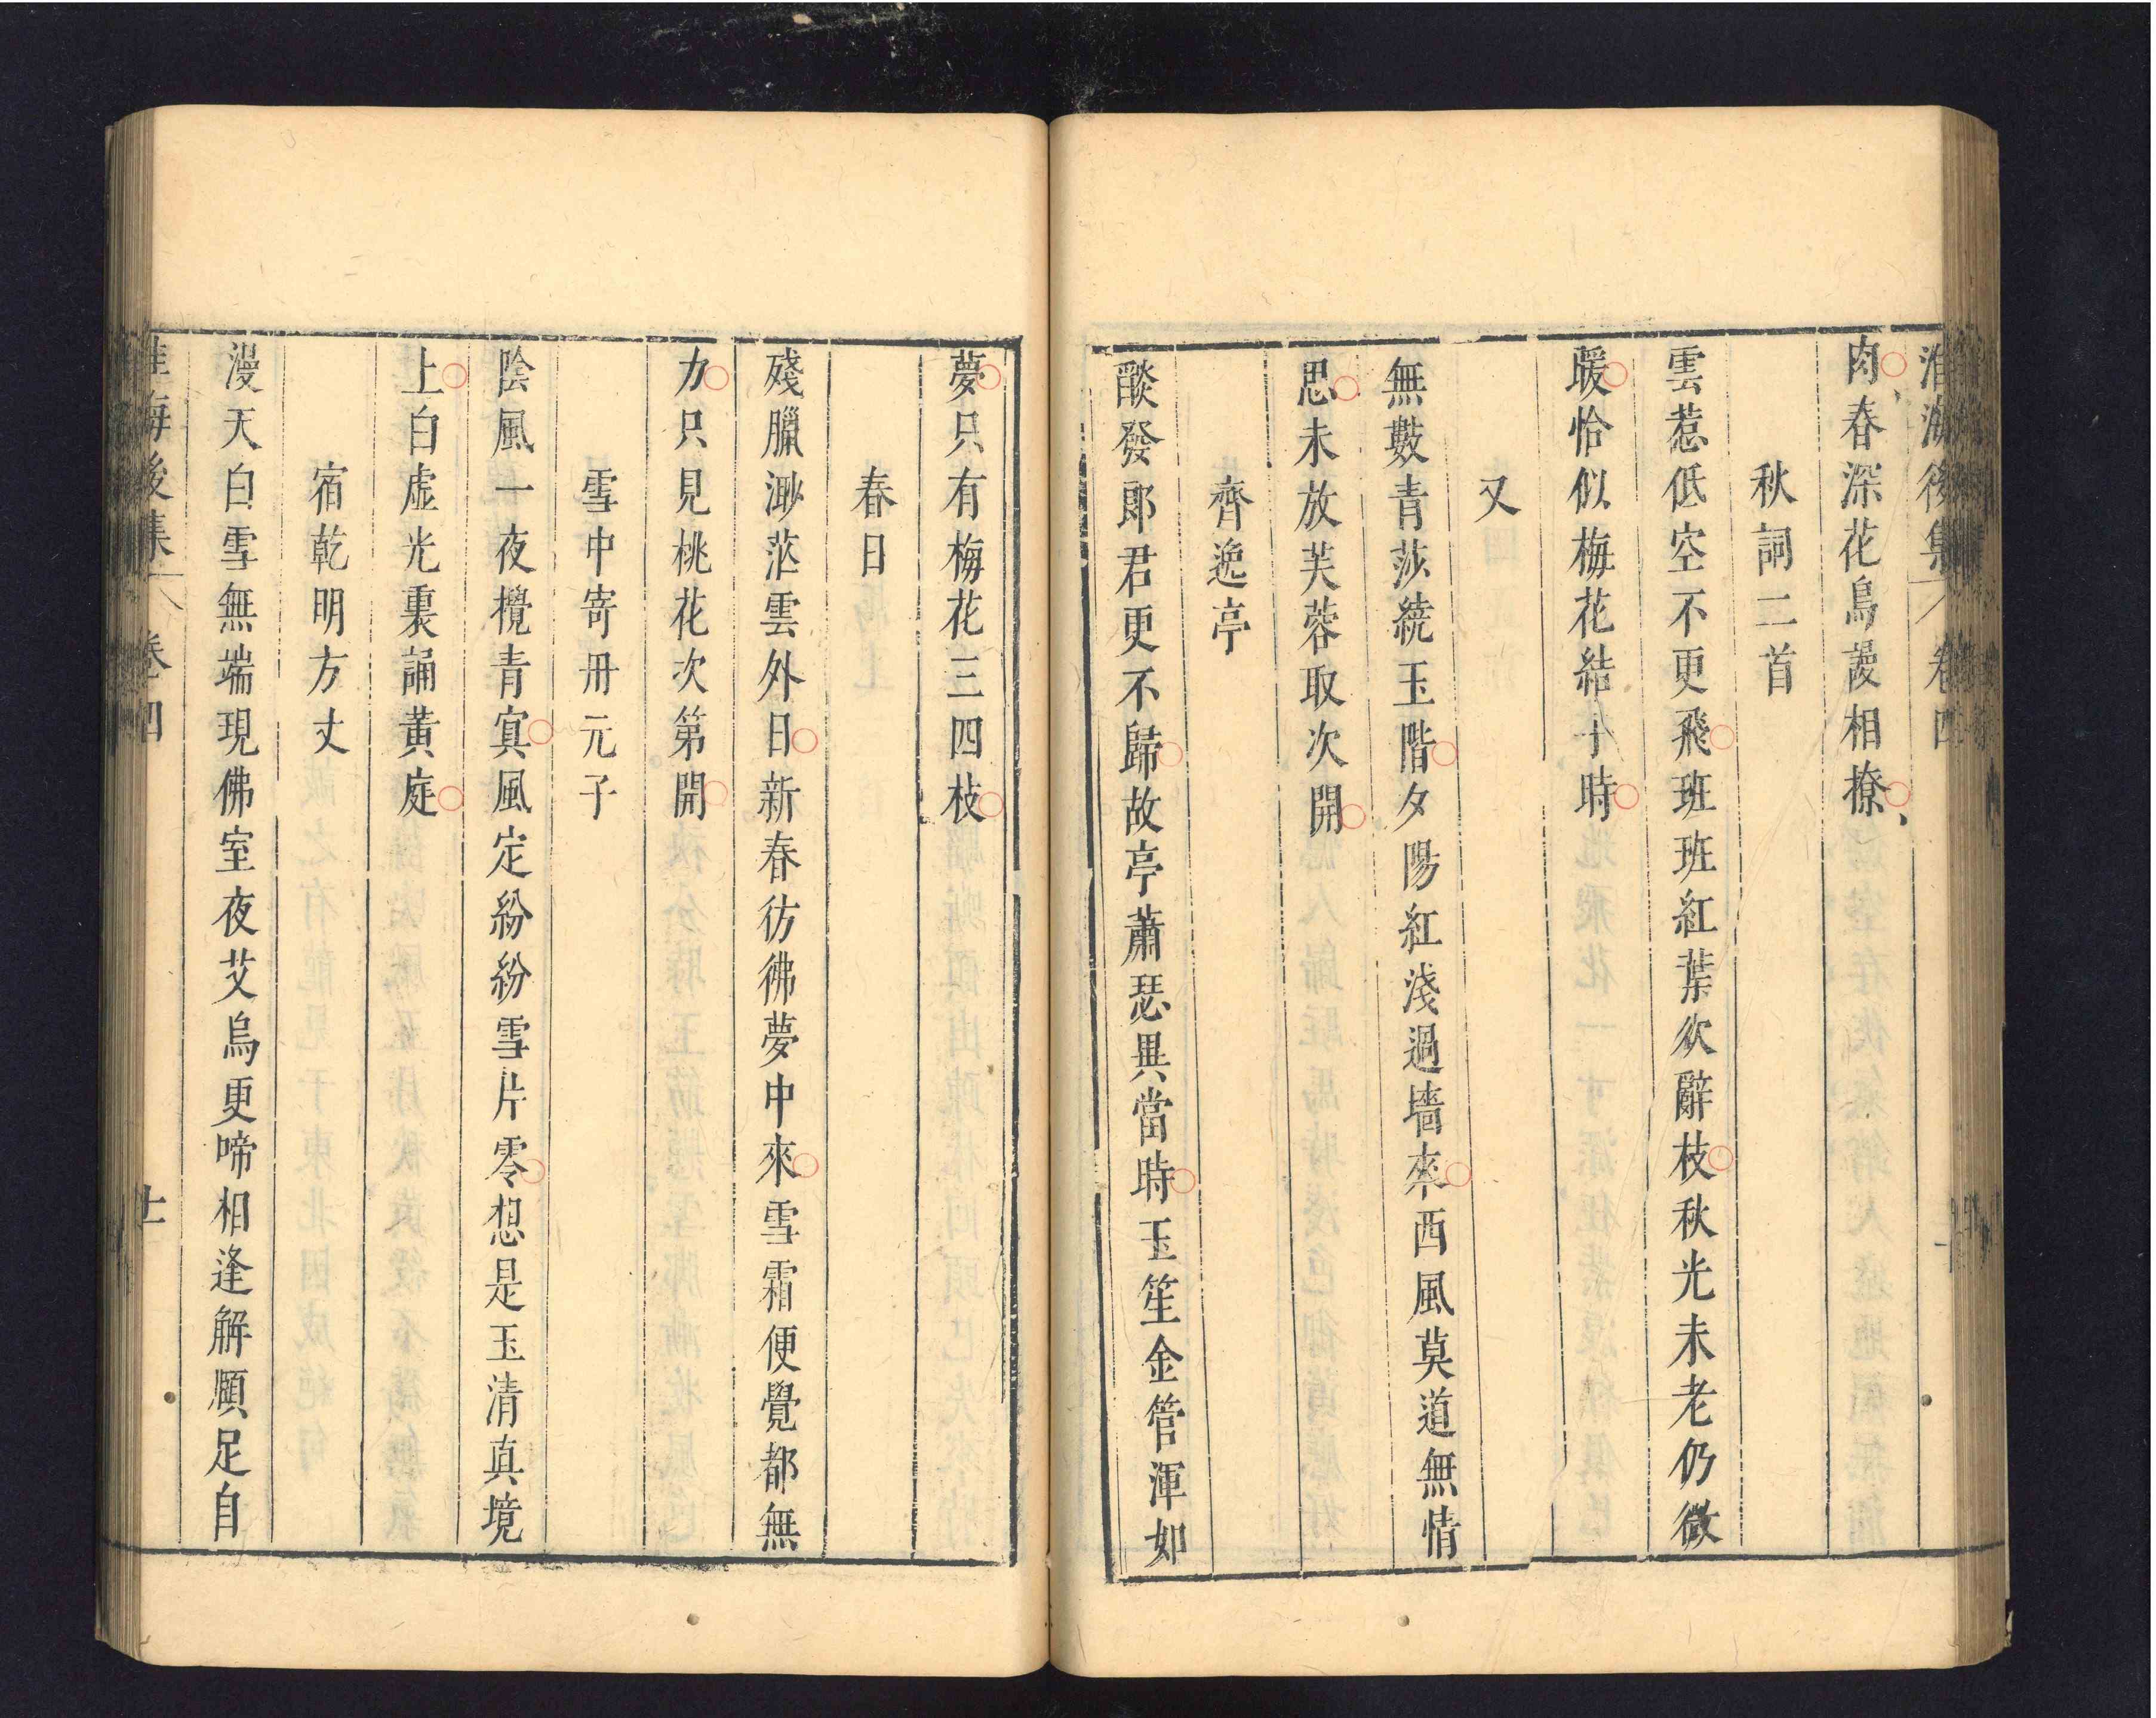 淮海後集 卷四
肉春深花鳥謾相撩
秋詞二首
雲惹低空不更飛班班紅葉欲辭枝秋光未老仍微
暖恰似梅花結子時
又
無數青莎繞玉階夕陽紅淺過墻來西風莫道無情
思未放芙蓉取次開
齊逸亭
醱發郎君更不歸故亭蕭瑟異當時玉笙金管渾如
夢只有梅花三四枝
春日
殘臘渺茫雲外日新春彷彿夢中來雪霜便覺都無
力只見桃花次第開
雪中寄丹元子
陰風一夜攪青冥風定紛紛雪片零想是玉清真境
上白虛光裏誦黃庭
宿乾明方丈
漫天白雪無端現佛室夜艾烏更啼相逢解頤足自
淮海後集 卷四 十一